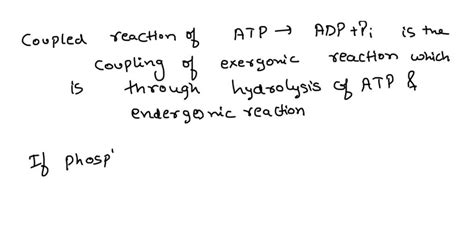 Coupled reaction of ATP → ADP + Pi is the
coupling of exergonic reaction which
is through hydrolysis of ATP &
endergonic reaction
If phosp